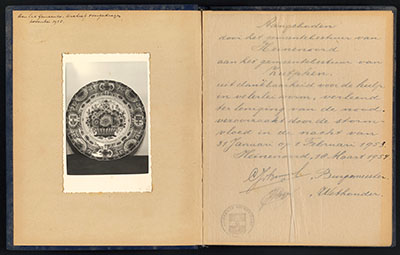 Aangeboden
door het gemeentebestuur van
Heinenoord
aan het gemeentebestuur van
Zutphen,
uit dankbaarheid voor de hulp,
in velerlei vorm, verleend
ter leniging van de nood,
veroorzaakt door de storm-
vloed in de nacht van
31 Januari op 1 Februari 1953.
Heinenoord, 18 Maart 1954.
Burgemeester
Wethouder